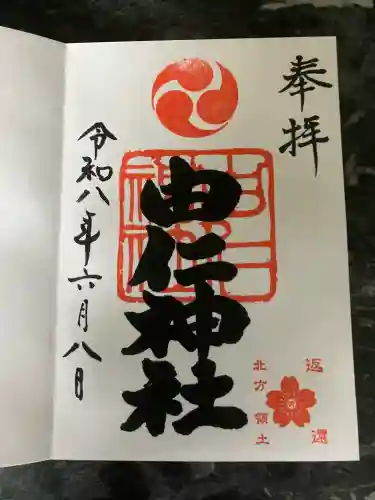 奉拝
由仁神社
令和八年六月八日
返還
北方領土